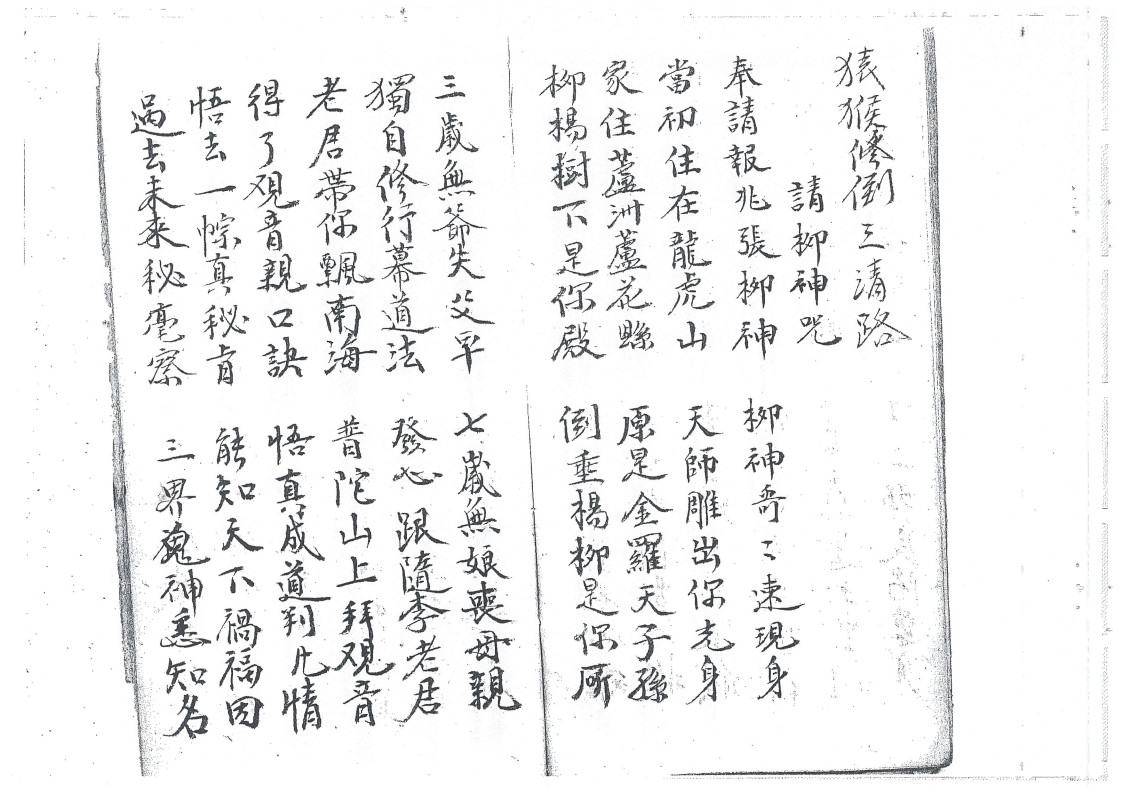 猿猴修倒三清路
請柳神咒
奉請報兆張柳神 柳神奇々速現身
當初住在龍虎山 天師雕出你光身
家住蘆洲蘆花縣 原是金羅天子孫
柳楊樹下是你殿 倒垂楊柳是你所
三歲無爺失父早 七歲無娘喪母親
獨自修行慕道法 發心跟隨李老君
老君帶你飄南海 普陀山上拜观音
得了观音親口訣 悟真成道判凡情
悟去一惊真秘旨 能知天下禍福因
過去未來秘毫察 三界鬼神悉知名